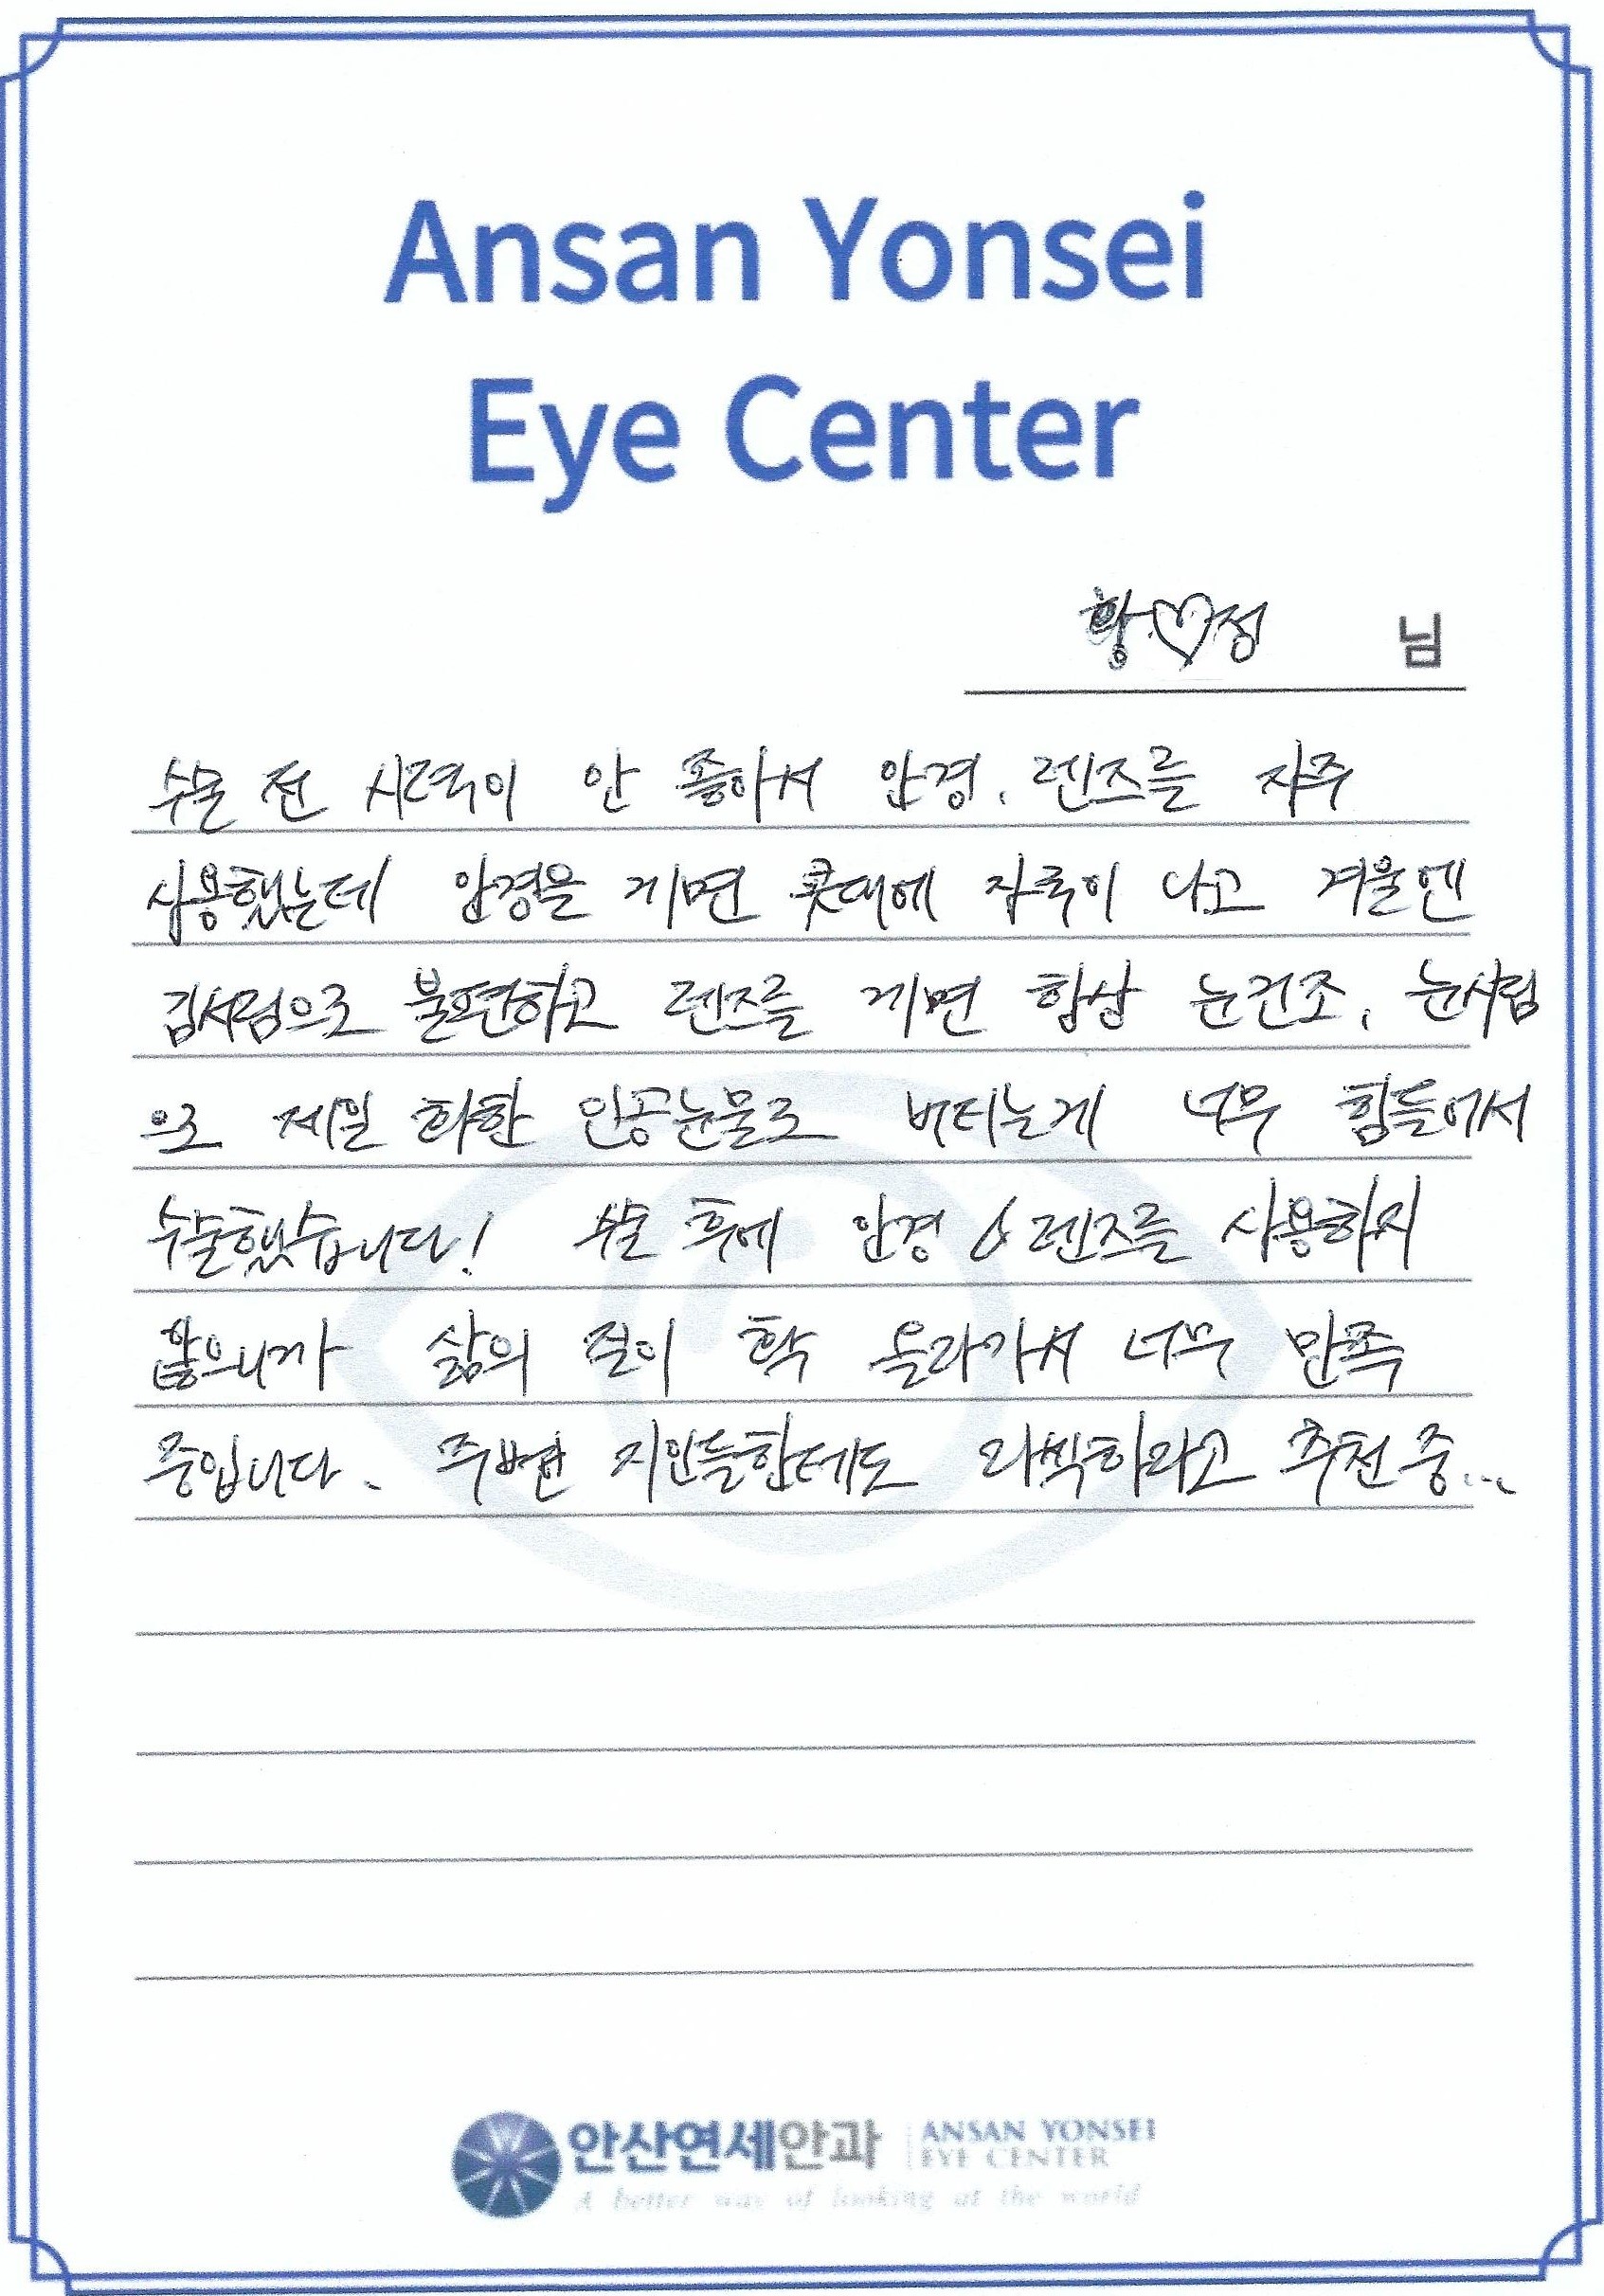 Ansan Yonsei
Eye Center
황♡정 님
수술 전 시력이 안 좋아서 안경, 렌즈를 자주
사용했는데 안경을 끼면 콧대에 자국이 나고 겨울엔
김서림으로 불편하고 렌즈를 끼면 항상 눈건조, 눈시림
으로 제일 화한 인공눈물로 버티는게 너무 힘들어서
수술했습니다! 수술 후에 안경 & 렌즈를 사용하지
않으니까 삶의 질이 확 올라가서 너무 만족
중입니다. 주변 지인들한테도 라섹하라고 추천 중...
안산연세안과 ANSAN YONSEI
EYE CENTER
A better way of looking at the world